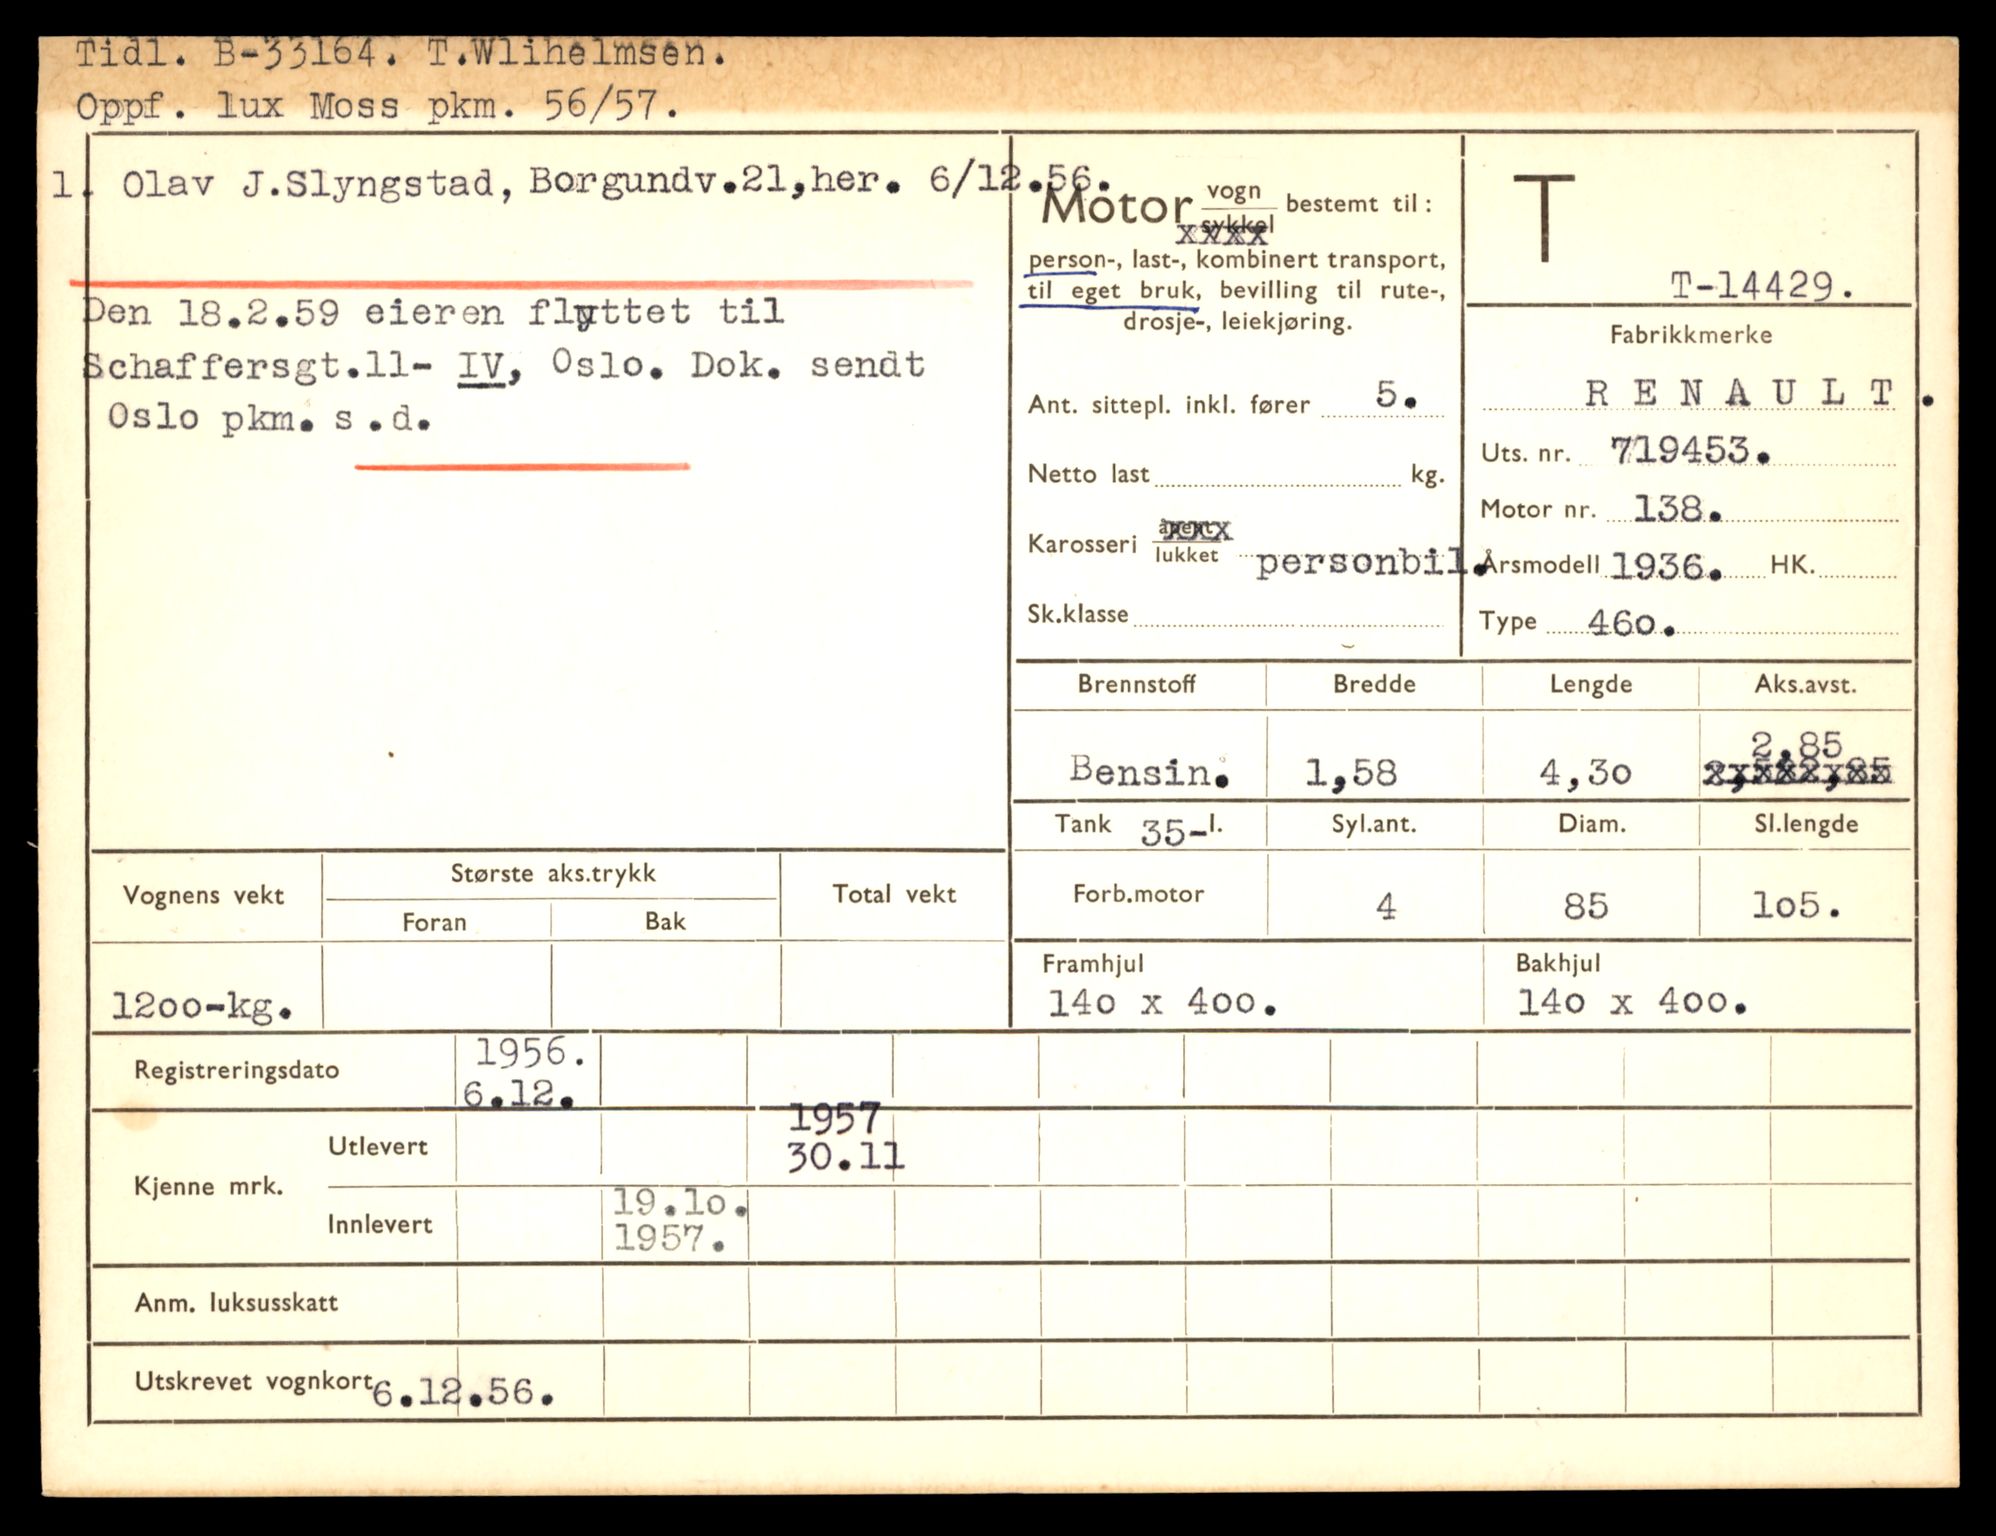 Tidl. B-33164. T.Wlihelmsen.
Oppf. lux Moss pkm. 56/57.
1. Olav J.Slyngstad, Borgundv.21,her. 6/12.56.
Den 18.2.59 eieren flyttet til
Schaffersgt.11- IV, Oslo. Dok. sendt
Oslo pkm. s.d.
Motor vogn
sykkel bestemt til:
person-, last-, kombinert transport,
til eget bruk, bevilling til rute-,
drosje-, leiekjøring.
Ant. sittepl. inkl. fører 5.
Netto last kg.
Karosseri åpent
lukket personbil.
Sk.klasse
T
T-14429.
Fabrikkmerke
R E N A U L T .
Uts. nr. 719453.
Motor nr. 138.
Årsmodell 1936. HK.
Type 46o.
Brennstoff Bredde Lengde Aks.avst.
2.85
Bensin. 1,58 4,3o
Tank 35-l. Syl.ant. Diam. Sl.lengde
Forb.motor 4 85 1o5.
Framhjul Bakhjul
14o x 4oo. 14o x 4oo.
Vognens vekt Største aks.trykk Total vekt
Foran Bak
12oo-kg.
Registreringsdato 1956.
6.12.
Kjenne mrk. Utlevert 1957
30.11
Innlevert 19.1o.
1957.
Anm. luksusskatt
Utskrevet vognkort 6.12.56.